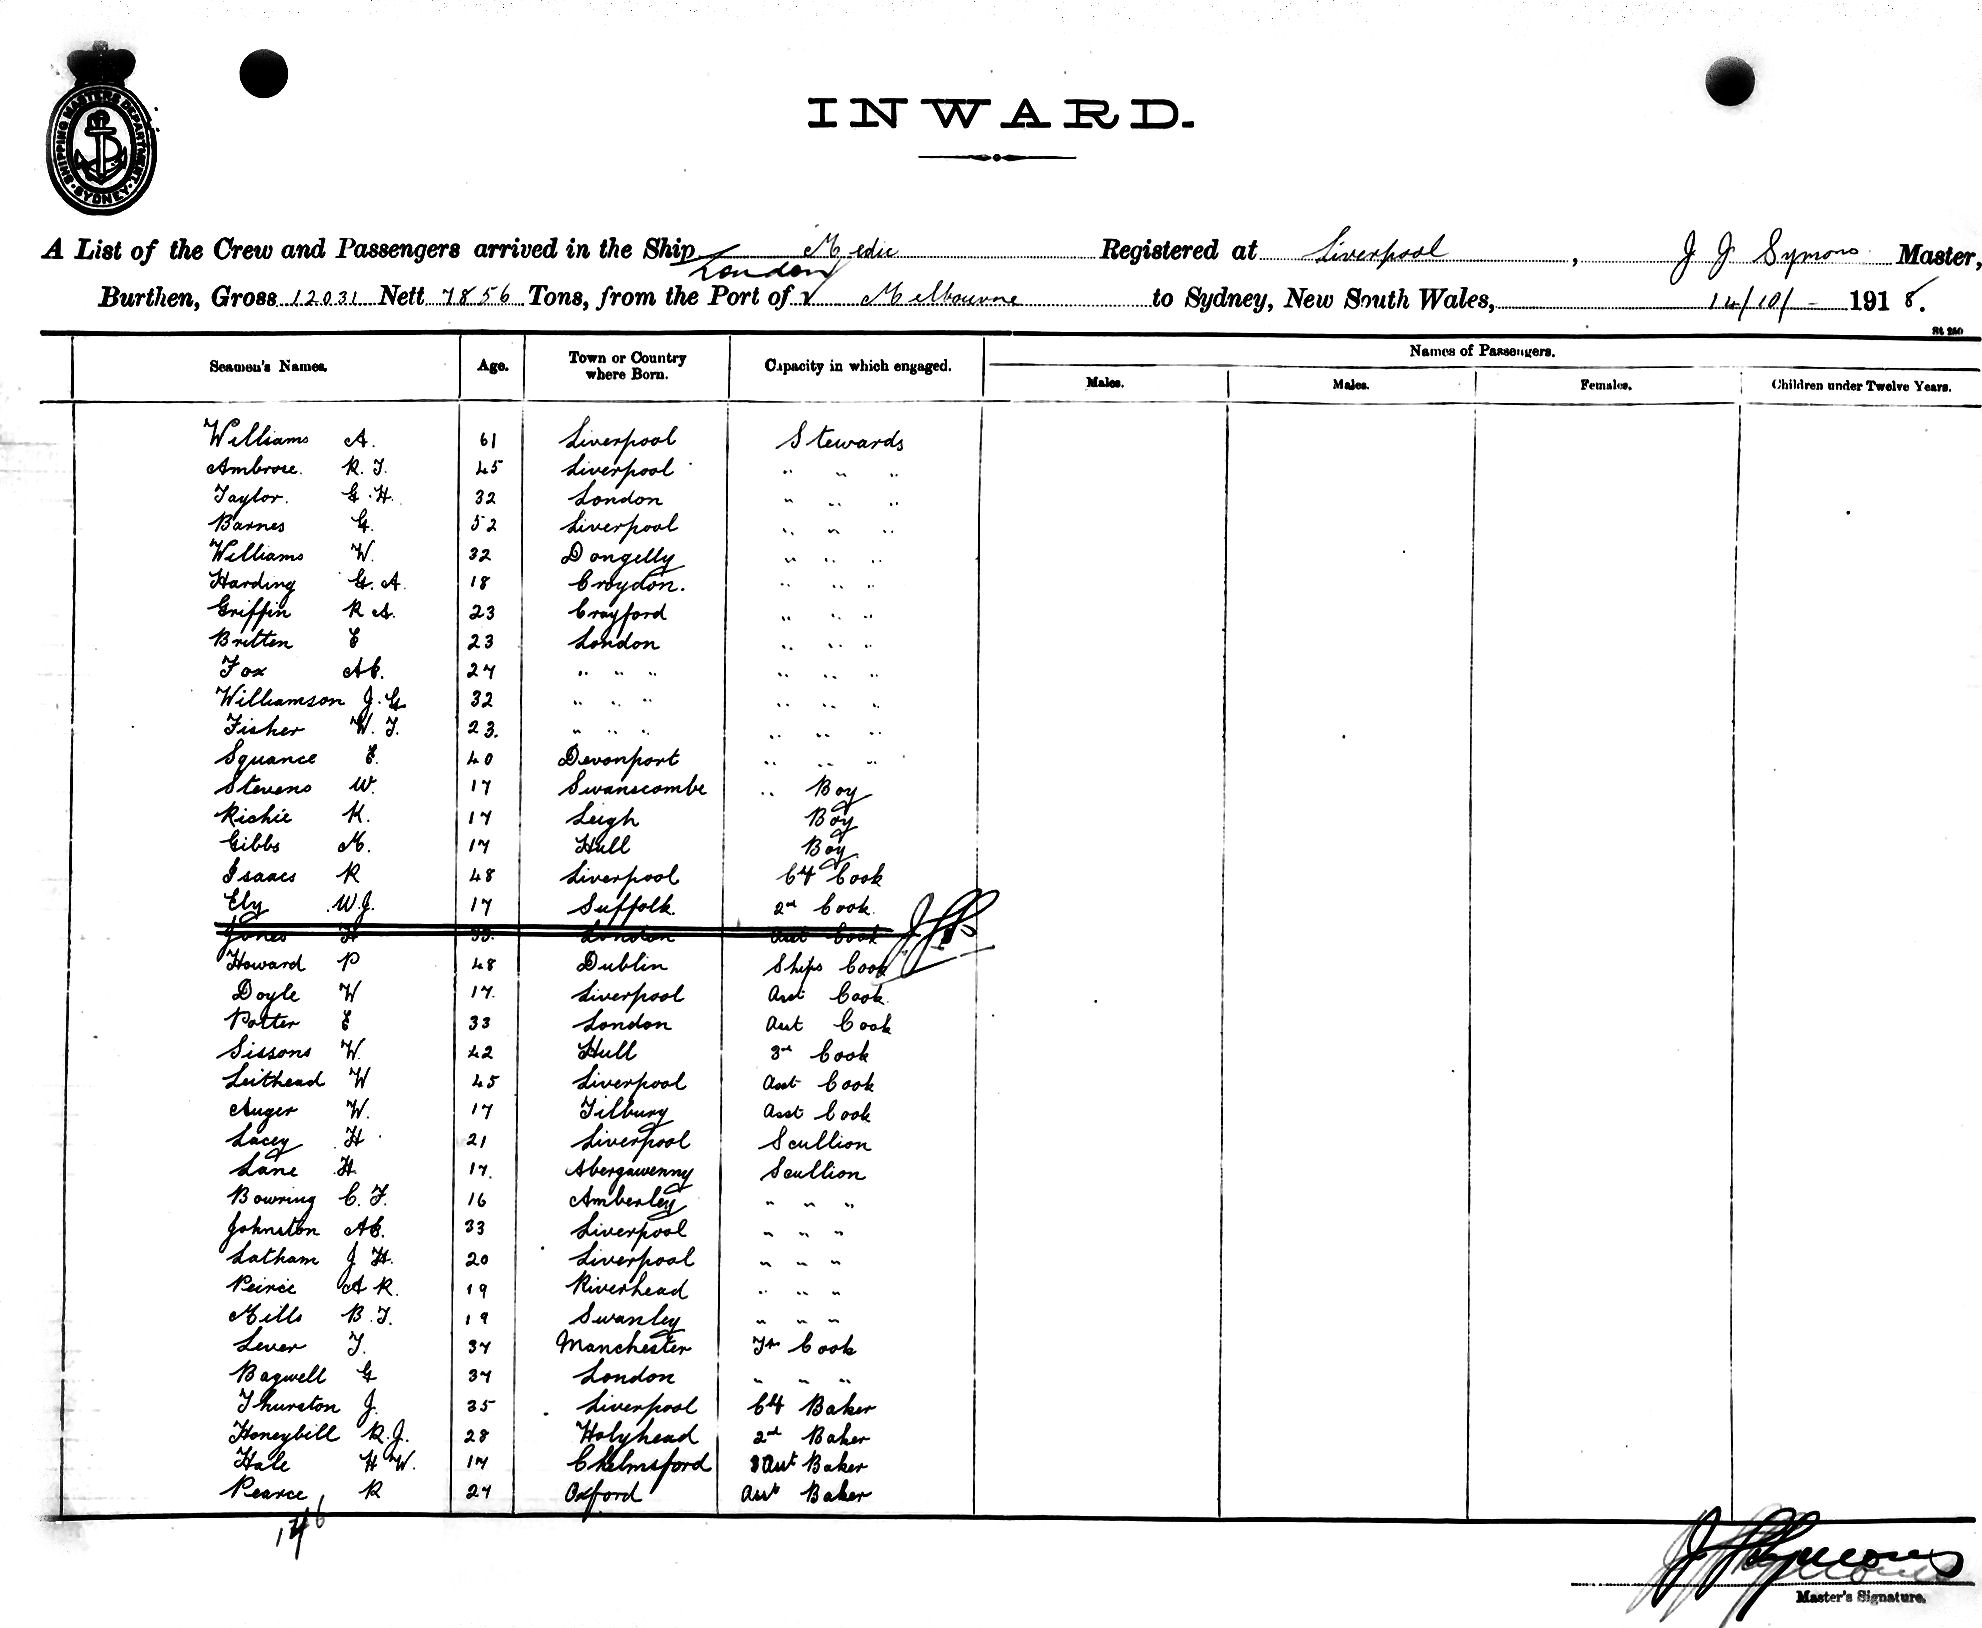 SHIPPING MASTERS DEPARTMENT · SYDNEY ·
INWARD.
A List of the Crew and Passengers arrived in the Ship Medic Registered at Liverpool, J J Symons Master,
London
Burthen, Gross 12031 Nett 7856 Tons, from the Port of Melbourne to Sydney, New South Wales, 14/10/- 1918.
St 250
Seamen's Names. Age. Town or Country where Born. Capacity in which engaged. Names of Passengers.
Males. Males. Females. Children under Twelve Years.
Williams A. 61 Liverpool Stewards
Ambrose. R. T. 45 Liverpool " " "
Taylor. G. H. 32 London " " "
Barnes G. 52 Liverpool " " "
Williams W. 32 Dongelly " " "
Harding G. A. 18 Croydon. " " "
Griffin R A. 23 Crayford " " "
Britten E 23 London " " "
Fox AE. 27 " " " " " "
Williamson J. G 32 " " " " " "
Fisher W. T. 23. " " " " " "
Squance E. 40 Devonport " " "
Stevens W. 17 Swanscombe " Boy
Richie K. 17 Leigh Boy
Gibbs M. 17 Hull Boy
Isaacs R 48 Liverpool Cf Cook
Ely W.J. 17 Suffolk. 2nd Cook.
Jones H 33. London Asst Cook JJS
Howard P 48 Dublin Ships Cook
Doyle W 17. Liverpool Asst Cook.
Potter E 33 London Asst Cook
Sissons W. 42 Hull 3rd Cook
Leithead W 45 Liverpool Asst Cook
Auger W. 17 Tilbury Asst Cook
Lacey H. 21 Liverpool Scullion
Lane H. 17. Abergavenny Scullion
Bowring C. F. 16 Amberley " " "
Johnston AE. 33 Liverpool " " "
Latham J H. 20 Liverpool " " "
Peirce A R. 19 Riverhead " " "
Mills B. T. 19 Swanley " " "
Lever T. 37 Manchester Tr Cook
Bagwell G 37 London " " "
Thurston J. 35 Liverpool Cf Baker
Honeybill R. J. 28 Holyhead 2nd Baker
Hale H W. 17 Chelmsford Asst Baker
Pearce R 27 Oxford Asst Baker
146
J J Symons
Master's Signature.